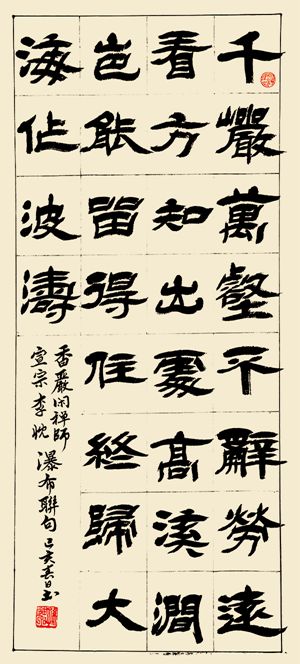 千巖萬壑不辭勞遠
看方知出處高溪澗
岂能留得住終歸大
海作波濤
香嚴闲禅師
宣宗李忱 瀑布聯句 己亥春日书